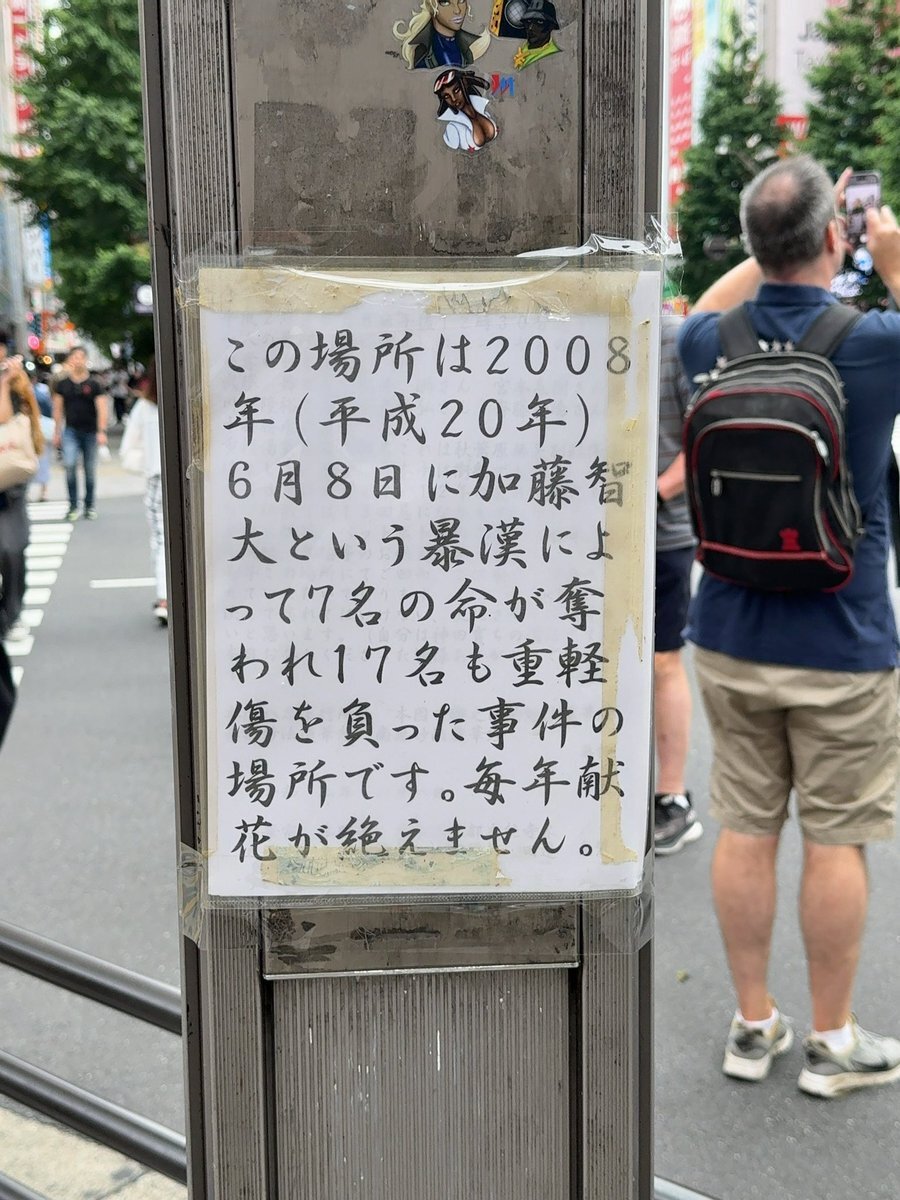 この場所は2008
年(平成20年)
6月8日に加藤智
大という暴漢によ
って7名の命が奪
われ17名も重軽
傷を負った事件の
場所です。毎年献
花が絶えません。